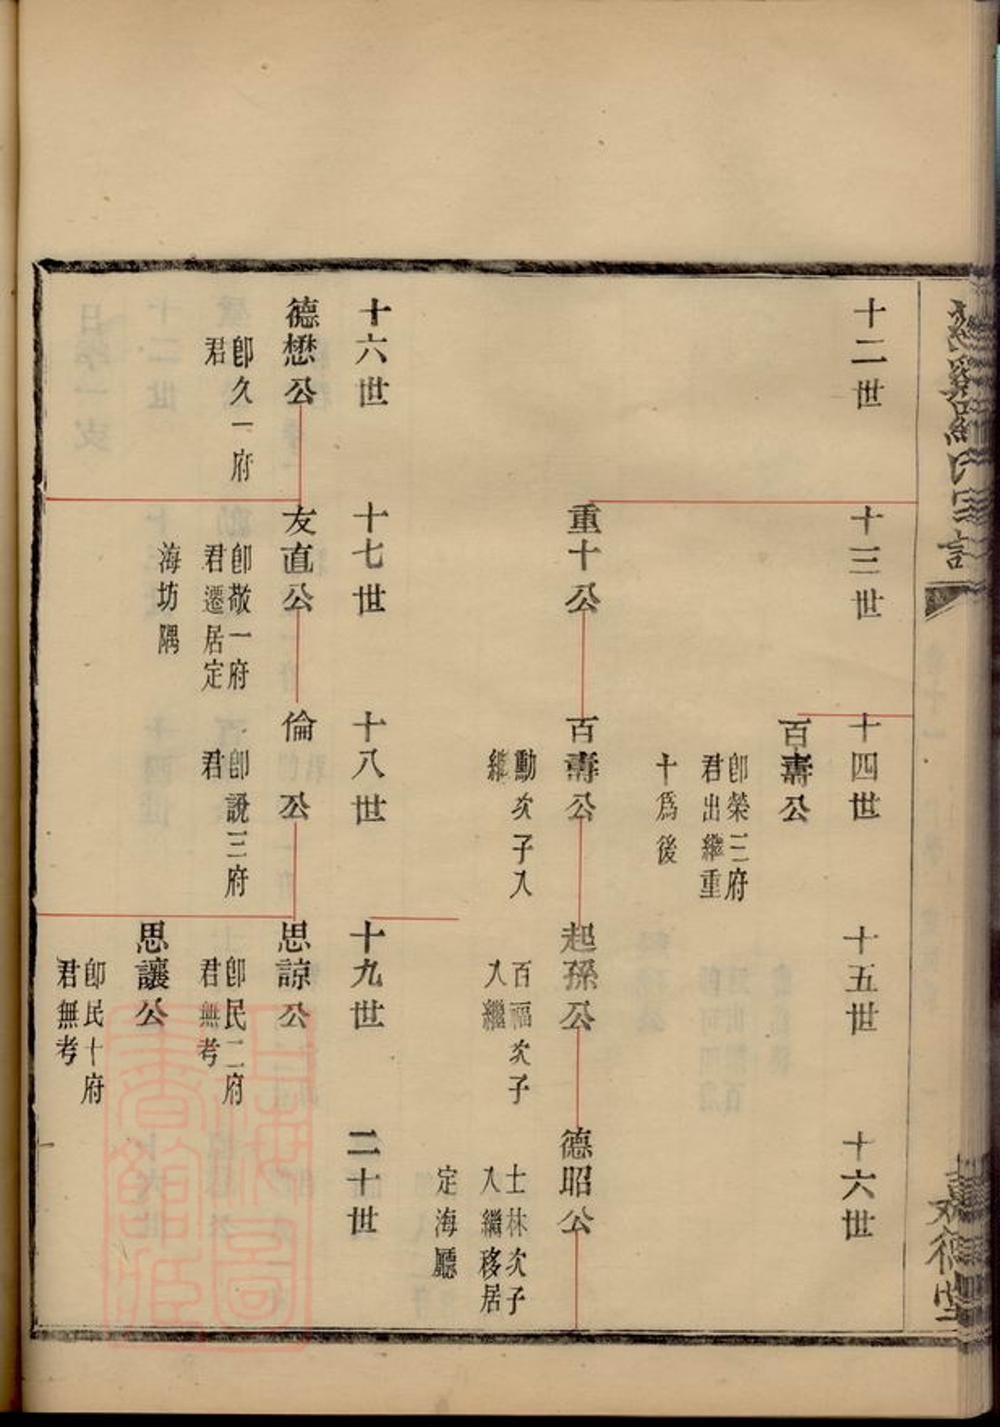 十二世
十三世
十四世
十五世
十六世
百壽公
即榮三府
君出繼重
十爲後
重十公
百壽公
勳次子入
繼
起孫公
百福次子
入繼
德昭公
士林次子
入繼移居
定海廳
十六世
十七世
十八世
十九世
二十世
德懋公
即久一府
君
友直公
即敬一府
君遷居定
海坊隅
倫公
即説三府
君
思諒公
即民二府
君無考
思讓公
即民十府
君無考